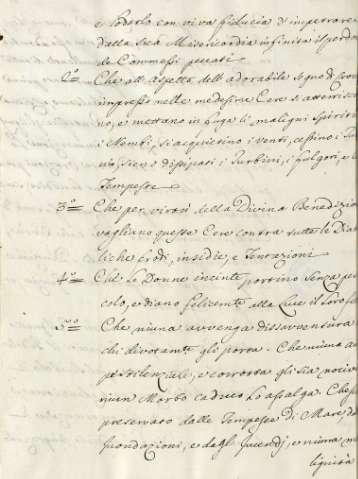 e Poderlo con viva fiducia d'imperrare
dalla Sua Misericordia infinita il perdon
de Commessi peccati
2.° Che all'Aspetto dell'adorabile Segno di Croce
impresso nelle medesime Cere s'atterrisca
no, e mettano in fuga li maligni Spiriti
i Nembi, si acquietino i venti, cessino i
e dissipati i Turbini, i fulgori, e le
Tempeste
3.° Che per virtù della Divina Benedizion
vagliano queste Cere contra tutte le Dia
liche frodi, insidie, e Tentazioni
4.° Che le Donne incinte, portino Senza peri
colo, e diano felicemte alla luce il loro
5.° Che niuna avvenga disavventura
chi divotamte gli porta. Che niuna
pestilenziale, e corrotta gli sia nociva
niun Morbo caduco lo assalga. Che
preservato dalle Tempeste di Mare, da
Inondazioni, e dagl'Incendj, e niuna ma
lignità